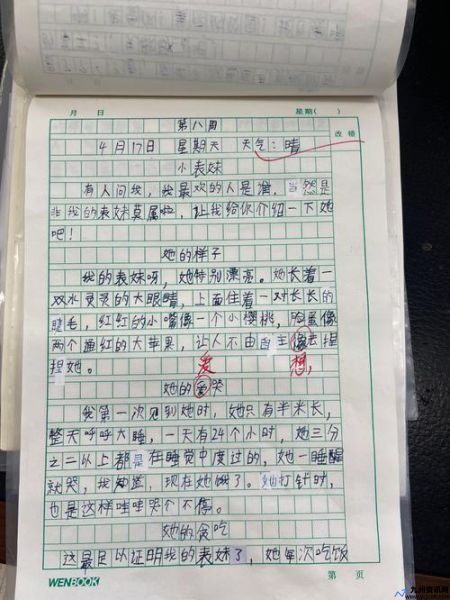 月 日 星期( )
改错
第八周
4月17日 星期天 天气：晴
小表妹
有人问我，我最欢的人是谁，当然是
非我的表妹莫属啦，让我给你介绍一下她
吧！
她的样子
我的表妹呀，她特别漂亮。她长着一
双水灵灵的大眼睛，上面住着一对长长的
睫毛，红红的小嘴像一个小樱桃，脸蛋像
两个通红的大苹果，让人不由自主像去捏
捏她。 爱 想，
她的 哭
我第一次见到她时，她只有半米长，
整天呼呼大睡，一天有24个小时，她三分
之二以上都是在睡觉中度过的，她一睡醒
就哭，我知道，现在她饿了。她打针时，
也是这样哇哇哭个不停。
她的贪吃
这最足以证明我的表妹了，她每次吃饭
WENBOOK 第 页
九州资讯网